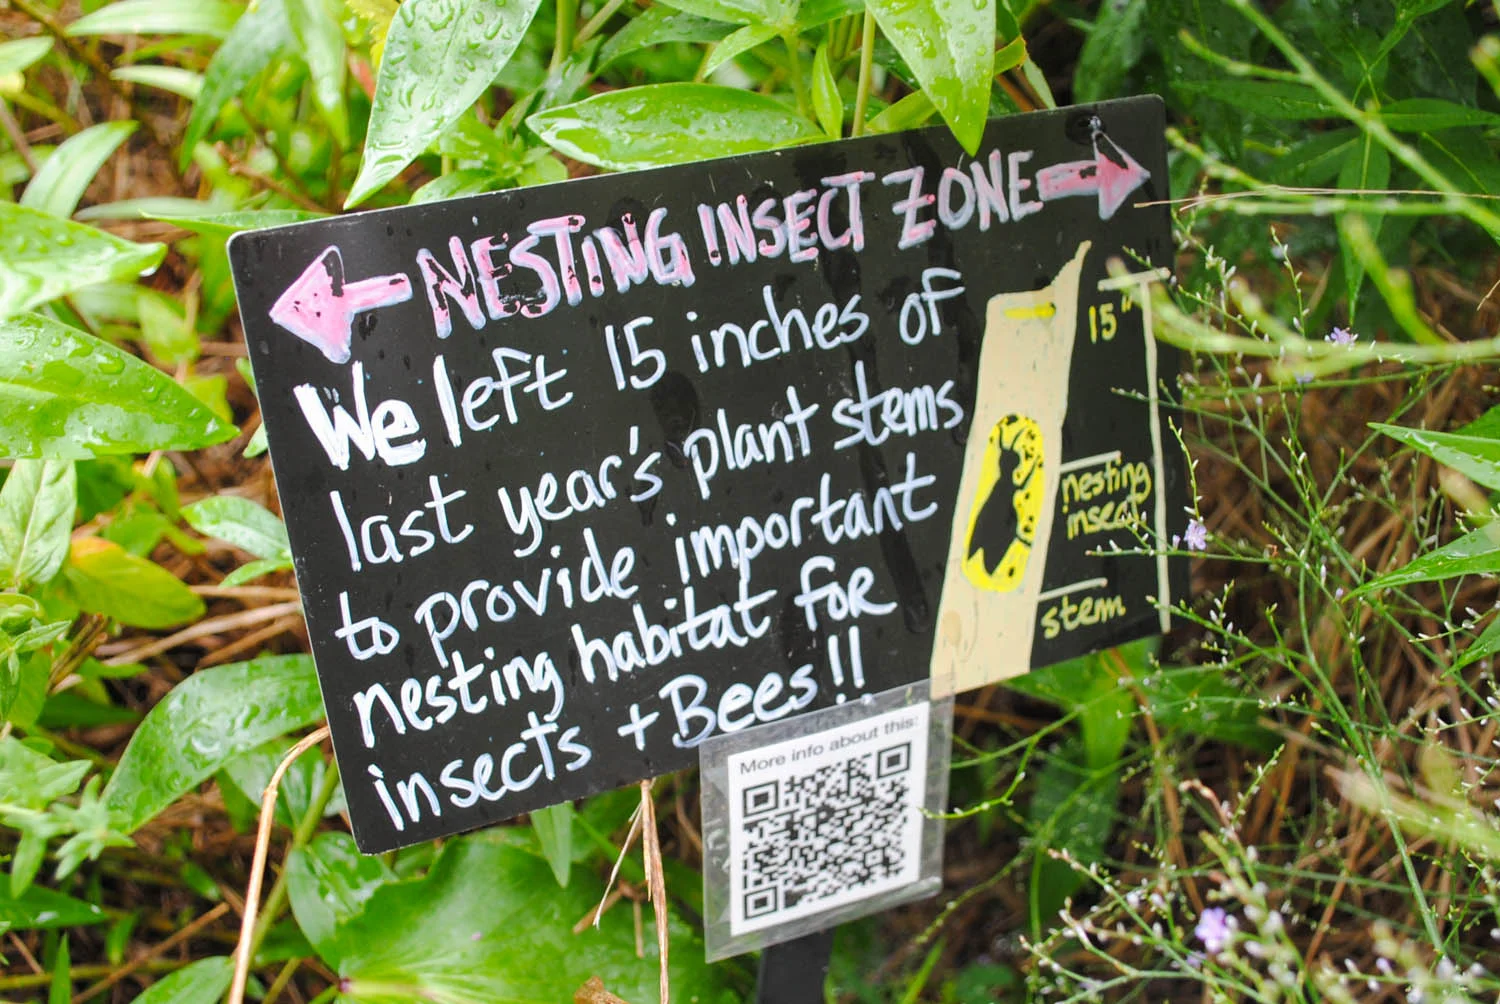 NESTING INSECT ZONE
We left 15 inches of
last year's plant stems
to provide important
nesting habitat for
insects + Bees!!
15"
nesting
insect
stem
More info about this: